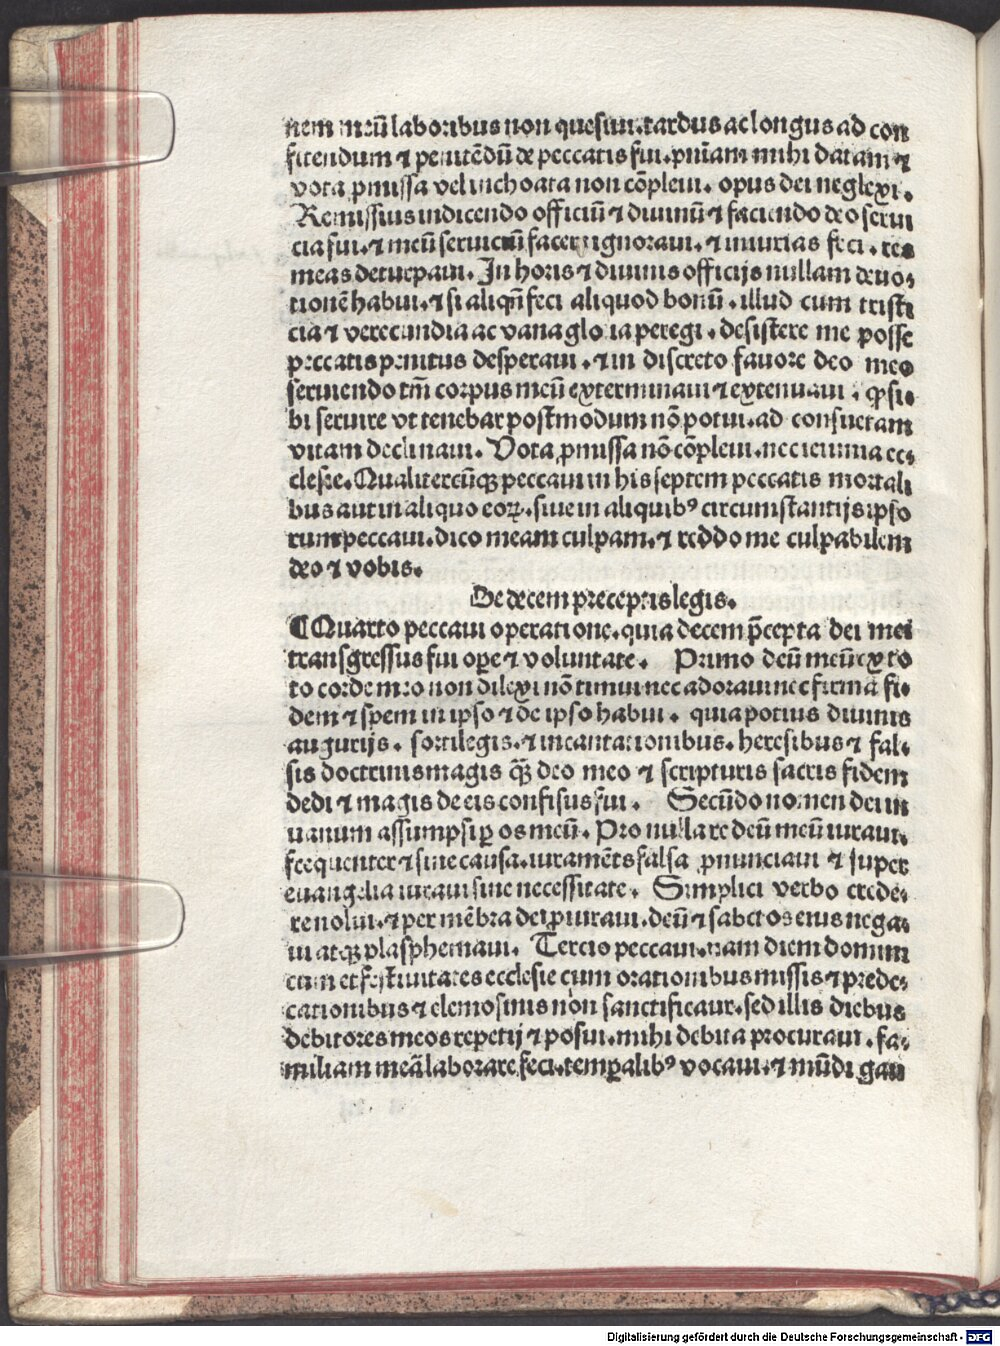 nem meū laboribus non quesiui. tardus ac longus ad con
fitendum ⁊ penitēdū de peccatis fui. pniam mihi datam ⁊
vota ꝓmissa vel inchoata non cōpleui. opus dei neglexi.
Remissius in dicendo officiū ⁊ diuinū ⁊ faciendo deo serui
cia fui. ⁊ meū seruiciū facere ignoraui. ⁊ iniurias feci. res
meas deturpaui. In horis ⁊ diuinis officijs nullam deuo⸗
tionē habui. ⁊ si aliqn̄ feci aliquod bonū. illud cum tristi
cia ⁊ verecundia ac vana gloria peregi. desistere me posse
peccatis penitus desperaui. ⁊ in discreto fauore deo meo
seruiendo tm̄ corpus meū exterminaui ⁊ extenuaui. ꝙ si⸗
bi seruire vt tenebar postmodum nō potui. ad consuetam
vitam declinaui. Vota ꝓmissa nō cōpleui. nec ieiunia ec⸗
clesie. Qualitercūqꝫ peccaui in his septem peccatis mortali
bus aut in aliquo eoꝝ. siue in aliquibꝰ circumstantijs ipso
rum peccaui. dico meam culpam. ⁊ reddo me culpabilem
deo ⁊ vobis.
De decem preceptis legis.
¶ Quarto peccaui operatione. quia decem p̄cepta dei mei
transgressus fui oꝑe ⁊ voluntate. Primo deū meū ex to
to corde meo non dilexi nō timui nec adoraui nec firma fi⸗
dem ⁊ spem in ipso ⁊ de ipso habui. quia potius diuinis
augurijs. sortilegis. ⁊ incantationibus. heresibus ⁊ fal⸗
sis doctrinis magis qꝫ̄ deo meo ⁊ scripturis sacris fidem
dedi ⁊ magis de eis confisus fui. Secūdo nomen dei in
uanum assumpsi ꝑ os meū. Pro nulla re deū meū iuraui.
frequenter ⁊ sine causa. iuramēts falsa ꝓnunciaui ⁊ super
euangelia iuraui sine necessitate. Simplici verbo crede⸗
re nolui. ⁊ per mēbra dei ꝑiuraui. deū ⁊ sanctos eius nega⸗
ui atqꝫ plasphemaui. Tercio peccaui. nam diem domini
cum et festiuitates ecclesie cum orationibus missis ⁊ prede⸗
cationibus ⁊ elemosinis non sanctificaui. sed illis diebus
debitores meos repetij ⁊ posui. mihi debita procuraui. fa⸗
miliam meā laborare feci. temꝑalibꝰ vocaui. ⁊ mūdi gau
Digitalisierung gefördert durch die Deutsche Forschungsgemeinschaft - DFG